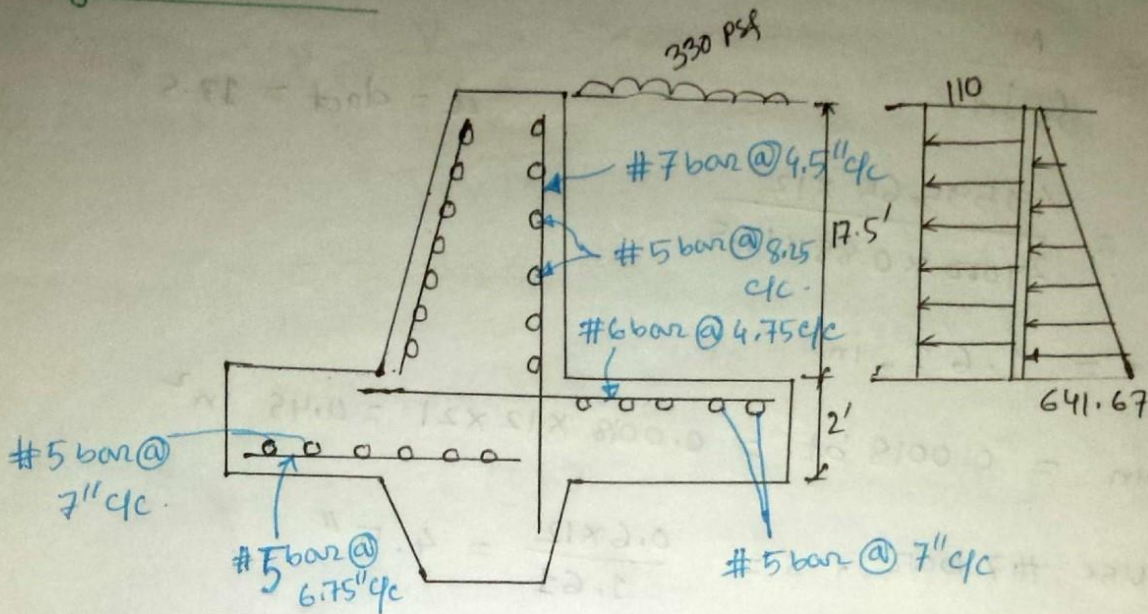 330 psf
110
#7 bar @ 4.5" c/c
17.5'
#5 bar @ 8.25
c/c.
#6 bar @ 4.75 c/c
641.67
2'
#5 bar @
7" c/c.
#5 bar @
6.75" c/c
#5 bar @ 7" c/c